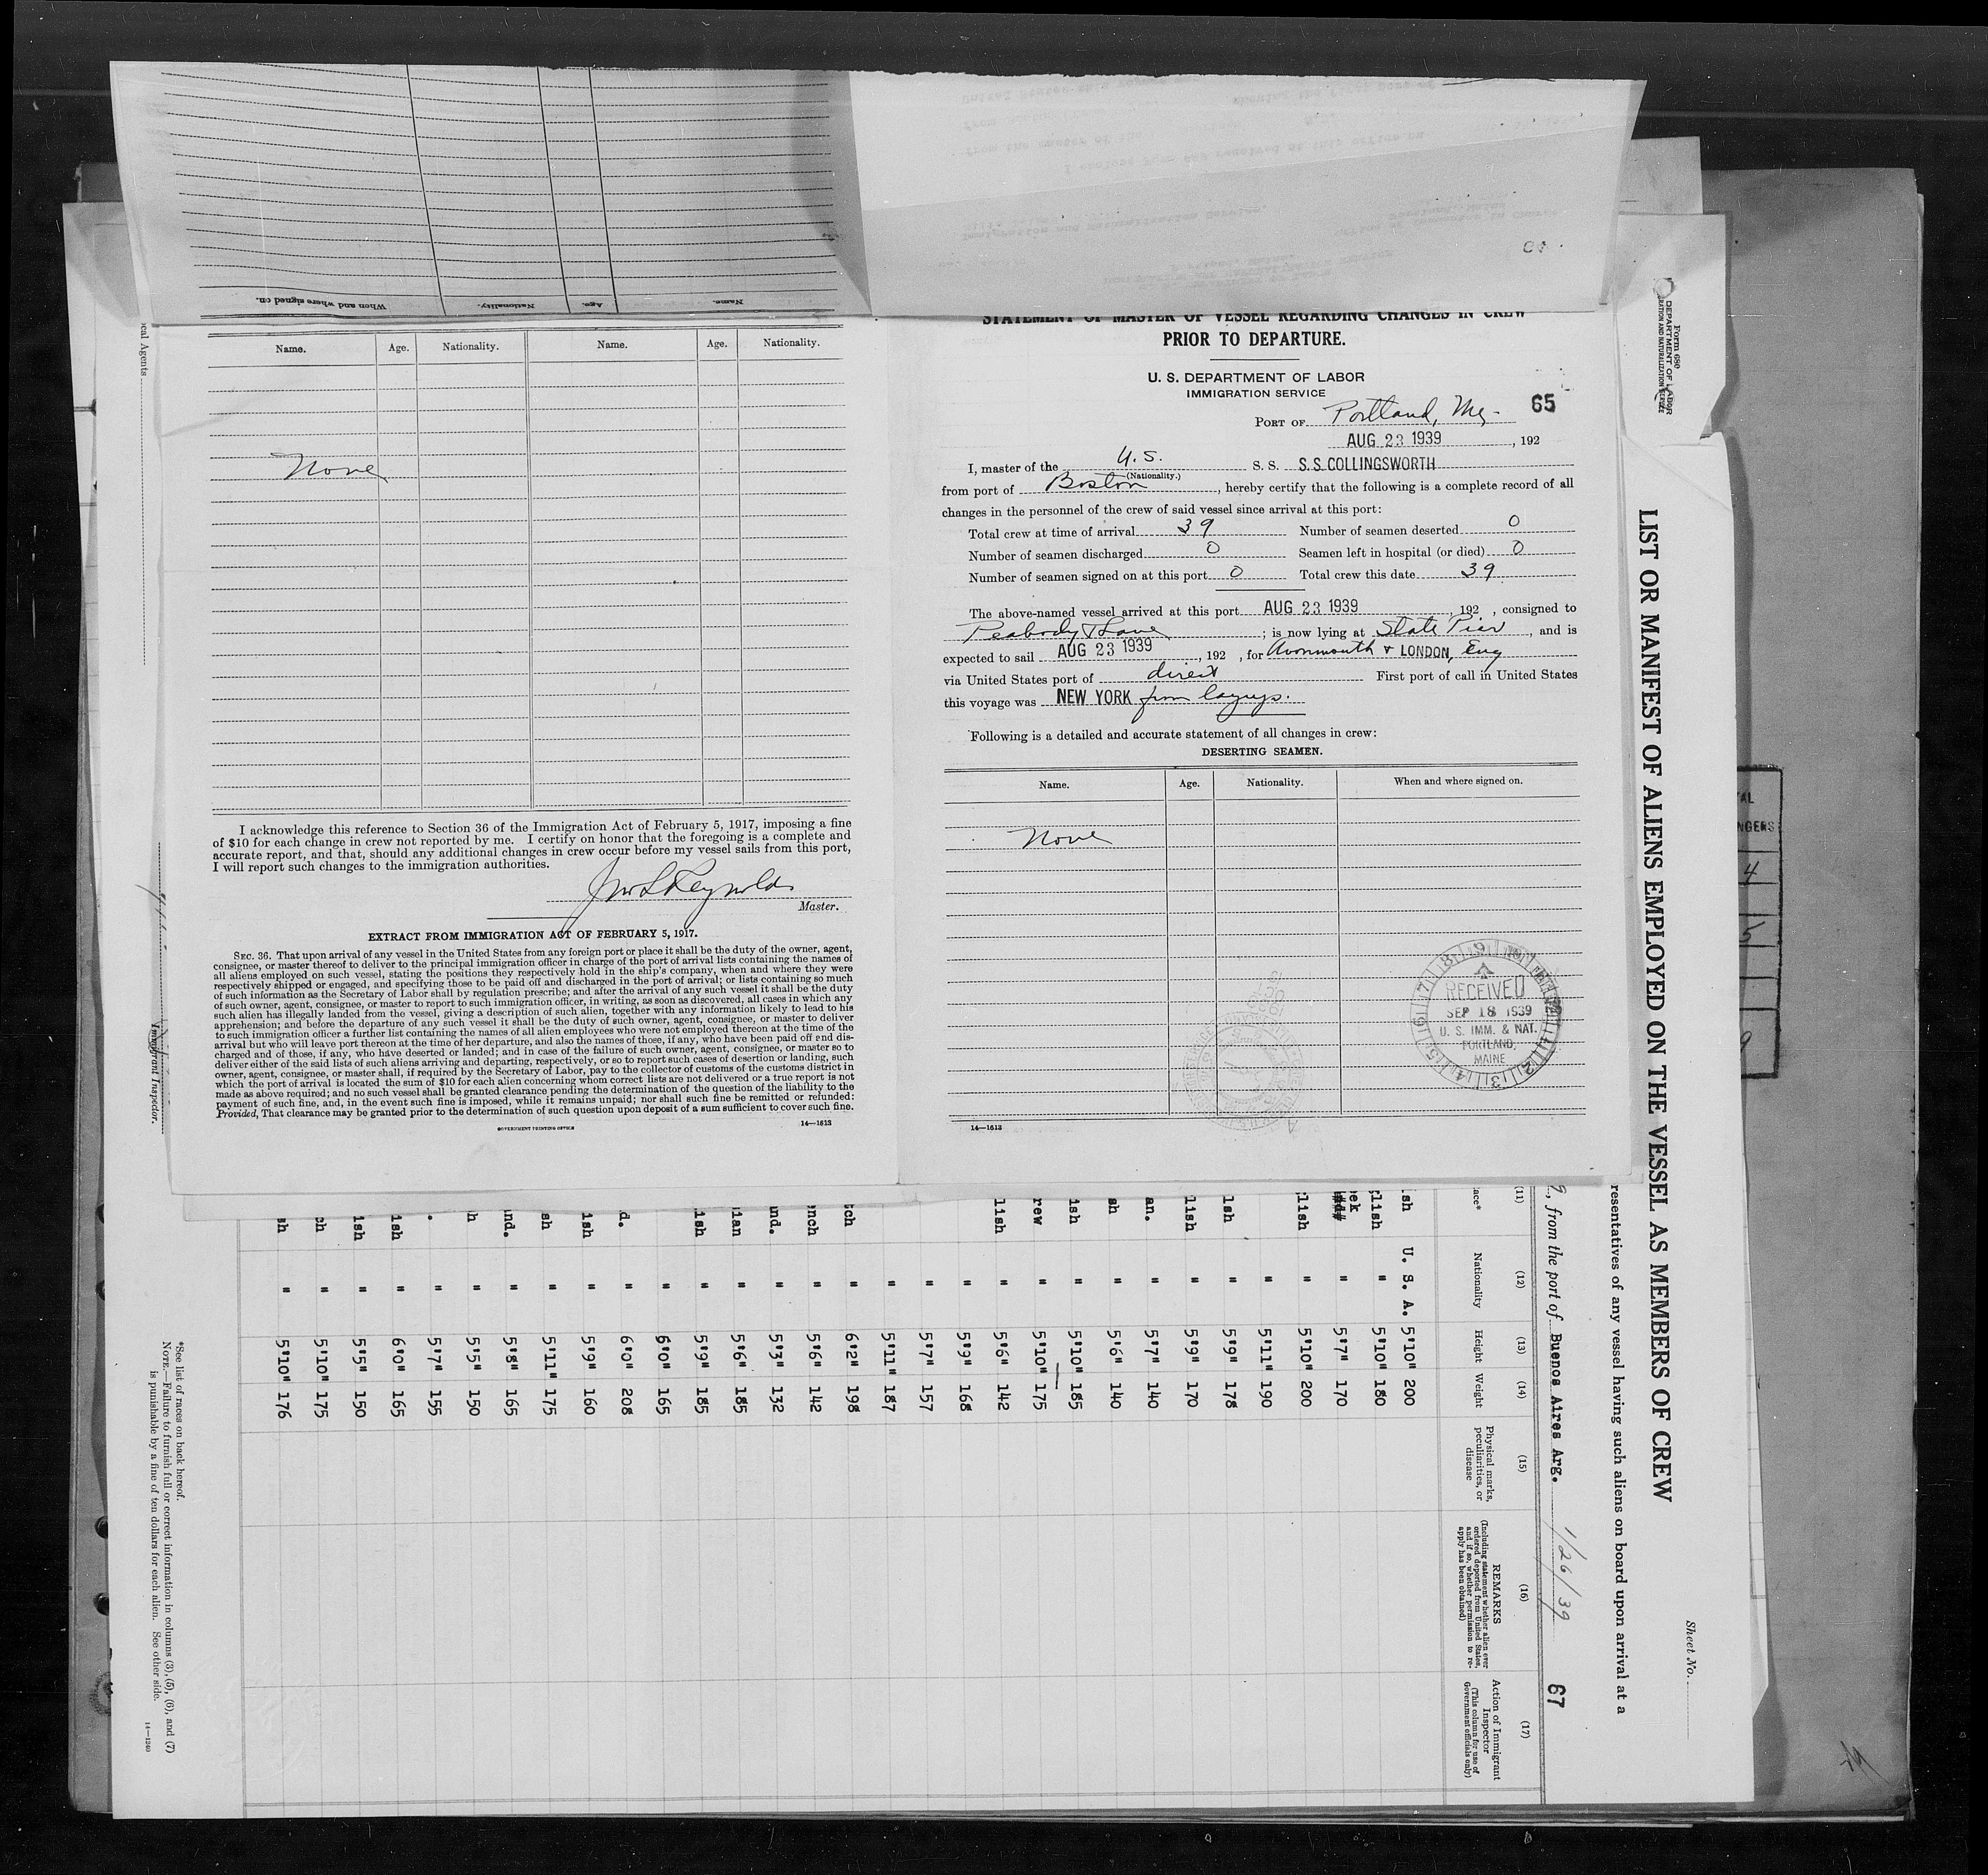 When and where signed on.
Nationality.
Age.
Name.
Name. Age. Nationality. Name. Age. Nationality.
None
I acknowledge this reference to Section 36 of the Immigration Act of February 5, 1917, imposing a fine
of $10 for each change in crew not reported by me. I certify on honor that the foregoing is a complete and
accurate report, and that, should any additional changes in crew occur before my vessel sails from this port,
I will report such changes to the immigration authorities.
Jno L Reynolds
Master.
EXTRACT FROM IMMIGRATION ACT OF FEBRUARY 5, 1917.
SEC. 36. That upon arrival of any vessel in the United States from any foreign port or place it shall be the duty of the owner, agent,
consignee, or master thereof to deliver to the principal immigration officer in charge of the port of arrival lists containing the names of
all aliens employed on such vessel, stating the positions they respectively hold in the ship's company, when and where they were
respectively shipped or engaged, and specifying those to be paid off and discharged in the port of arrival; or lists containing so much
of such information as the Secretary of Labor shall by regulation prescribe; and after the arrival of any such vessel it shall be the duty
of such owner, agent, consignee, or master to report to such immigration officer, in writing, as soon as discovered, all cases in which any
such alien has illegally landed from the vessel, giving a description of such alien, together with any information likely to lead to his
apprehension; and before the departure of any such vessel it shall be the duty of such owner, agent, consignee, or master to deliver
to such immigration officer a further list containing the names of all alien employees who were not employed thereon at the time of the
arrival but who will leave port thereon at the time of her departure, and also the names of those, if any, who have been paid off and dis-
charged and of those, if any, who have deserted or landed; and in case of the failure of such owner, agent, consignee, or master so to
deliver either of the said lists of such aliens arriving and departing, respectively, or so to report such cases of desertion or landing, such
owner, agent, consignee, or master shall, if required by the Secretary of Labor, pay to the collector of customs of the customs district in
which the port of arrival is located the sum of $10 for each alien concerning whom correct lists are not delivered or a true report is not
made as above required; and no such vessel shall be granted clearance pending the determination of the question of the liability to the
payment of such fine, and, in the event such fine is imposed, while it remains unpaid; nor shall such fine be remitted or refunded:
Provided, That clearance may be granted prior to the determination of such question upon deposit of a sum sufficient to cover such fine.
GOVERNMENT PRINTING OFFICE 14—1613
STATEMENT OF MASTER OF VESSEL REGARDING CHANGES IN CREW
PRIOR TO DEPARTURE.
U. S. DEPARTMENT OF LABOR
IMMIGRATION SERVICE
PORT OF Portland, Me, 65
AUG 23 1939, 192
I, master of the U.S. S. S. S.S COLLINGSWORTH
(Nationality.)
from port of Boston, hereby certify that the following is a complete record of all
changes in the personnel of the crew of said vessel since arrival at this port:
Total crew at time of arrival 39 Number of seamen deserted 0
Number of seamen discharged 0 Seamen left in hospital (or died) 0
Number of seamen signed on at this port 0 Total crew this date 39
The above-named vessel arrived at this port AUG 23 1939, 192 , consigned to
Peabody & Lane; is now lying at State Pier, and is
expected to sail AUG 23 1939, 192 , for Avonmouth & LONDON, Eng
via United States port of direct First port of call in United States
this voyage was NEW YORK from
Following is a detailed and accurate statement of all changes in crew:
DESERTING SEAMEN.
Name. Age. Nationality. When and where signed on.
None
RECEIVED
SEP 18 1939
U. S. IMM. & NAT.
PORTLAND,
MAINE
14—1613
Form 680
DEPARTMENT OF LABOR
LIST OR MANIFEST OF ALIENS EMPLOYED ON THE VESSEL AS MEMBERS OF CREW
Sheet No.
resentatives of any vessel having such aliens on board upon arrival at a
9, from the port of Buenos Aires Arg. 1/26/39 67
(11) (12) (13) (14) (15) (16) (17)
ace* Nationality Height Weight Physical marks, peculiarities, or disease REMARKS (Including statement whether alien ever ordered deported from United States, and if so, whether permission to re-apply has been obtained) Action of Immigrant Inspector (This column for use of Government officials only)
ish U. S. A. 5'10" 200
glish " 5'10" 180
ek " 5'7" 170
glish " 5'10" 200
" 5'11" 190
lsh " 5'9" 178
lish " 5'9" 170
an. " 5'7" 140
sh " 5'6" 140
ish " 5'10" 185
rew " 5'10" 175
lish " 5'6" 142
" 5'9" 168
" 5'7" 157
" 5'11" 187
tch " 6'2" 198
nch " 5'6" 142
and. " 5'3" 132
ian " 5'6" 185
lish " 5'9" 185
" 6'0" 165
d. " 6'0" 208
ish " 5'9" 160
sh " 5'11" 175
nd. " 5'8" 165
h " 5'5" 150
. " 5'7" 155
ish " 6'0" 165
ish " 5'5" 150
ch " 5'10" 175
sh " 5'10" 176
*See list of races on back hereof.
NOTE.—Failure to furnish full or correct information in columns (3), (5), (6), and (7)
is punishable by a fine of ten dollars for each alien. See other side.
14—1240
cal Agents
Immigrant Inspector.
AL
NGERS
4
5
9